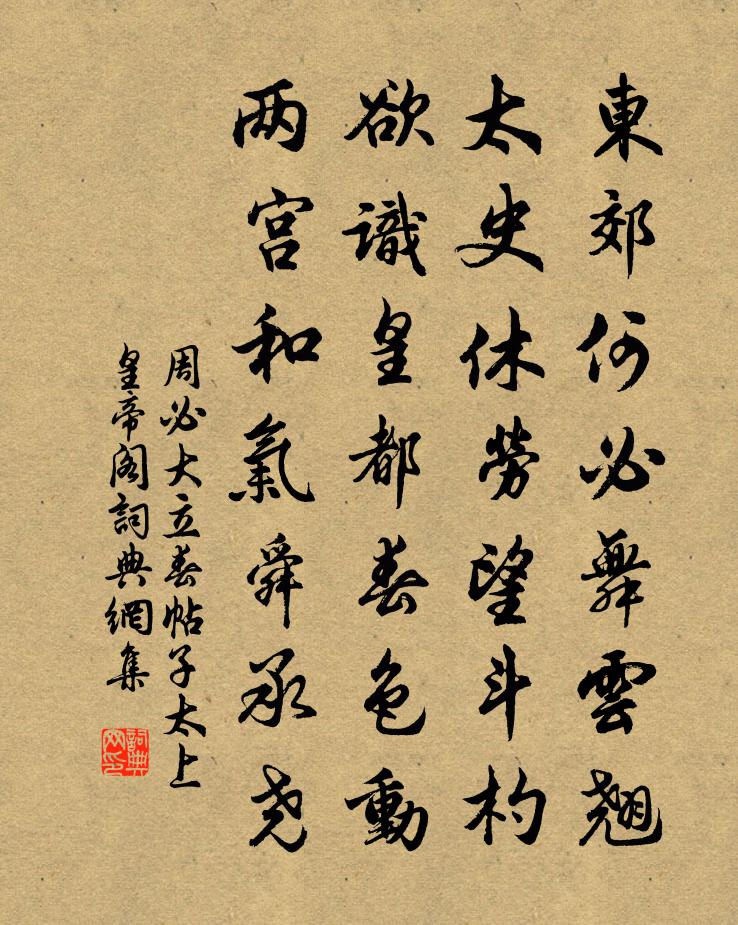 東郊何必舞雲翹
太史休勞望斗杓
欲識皇都春色動
两宫和氣舜承尧
周必大立春帖子太上
皇帝阁詞典網集
詞典网印